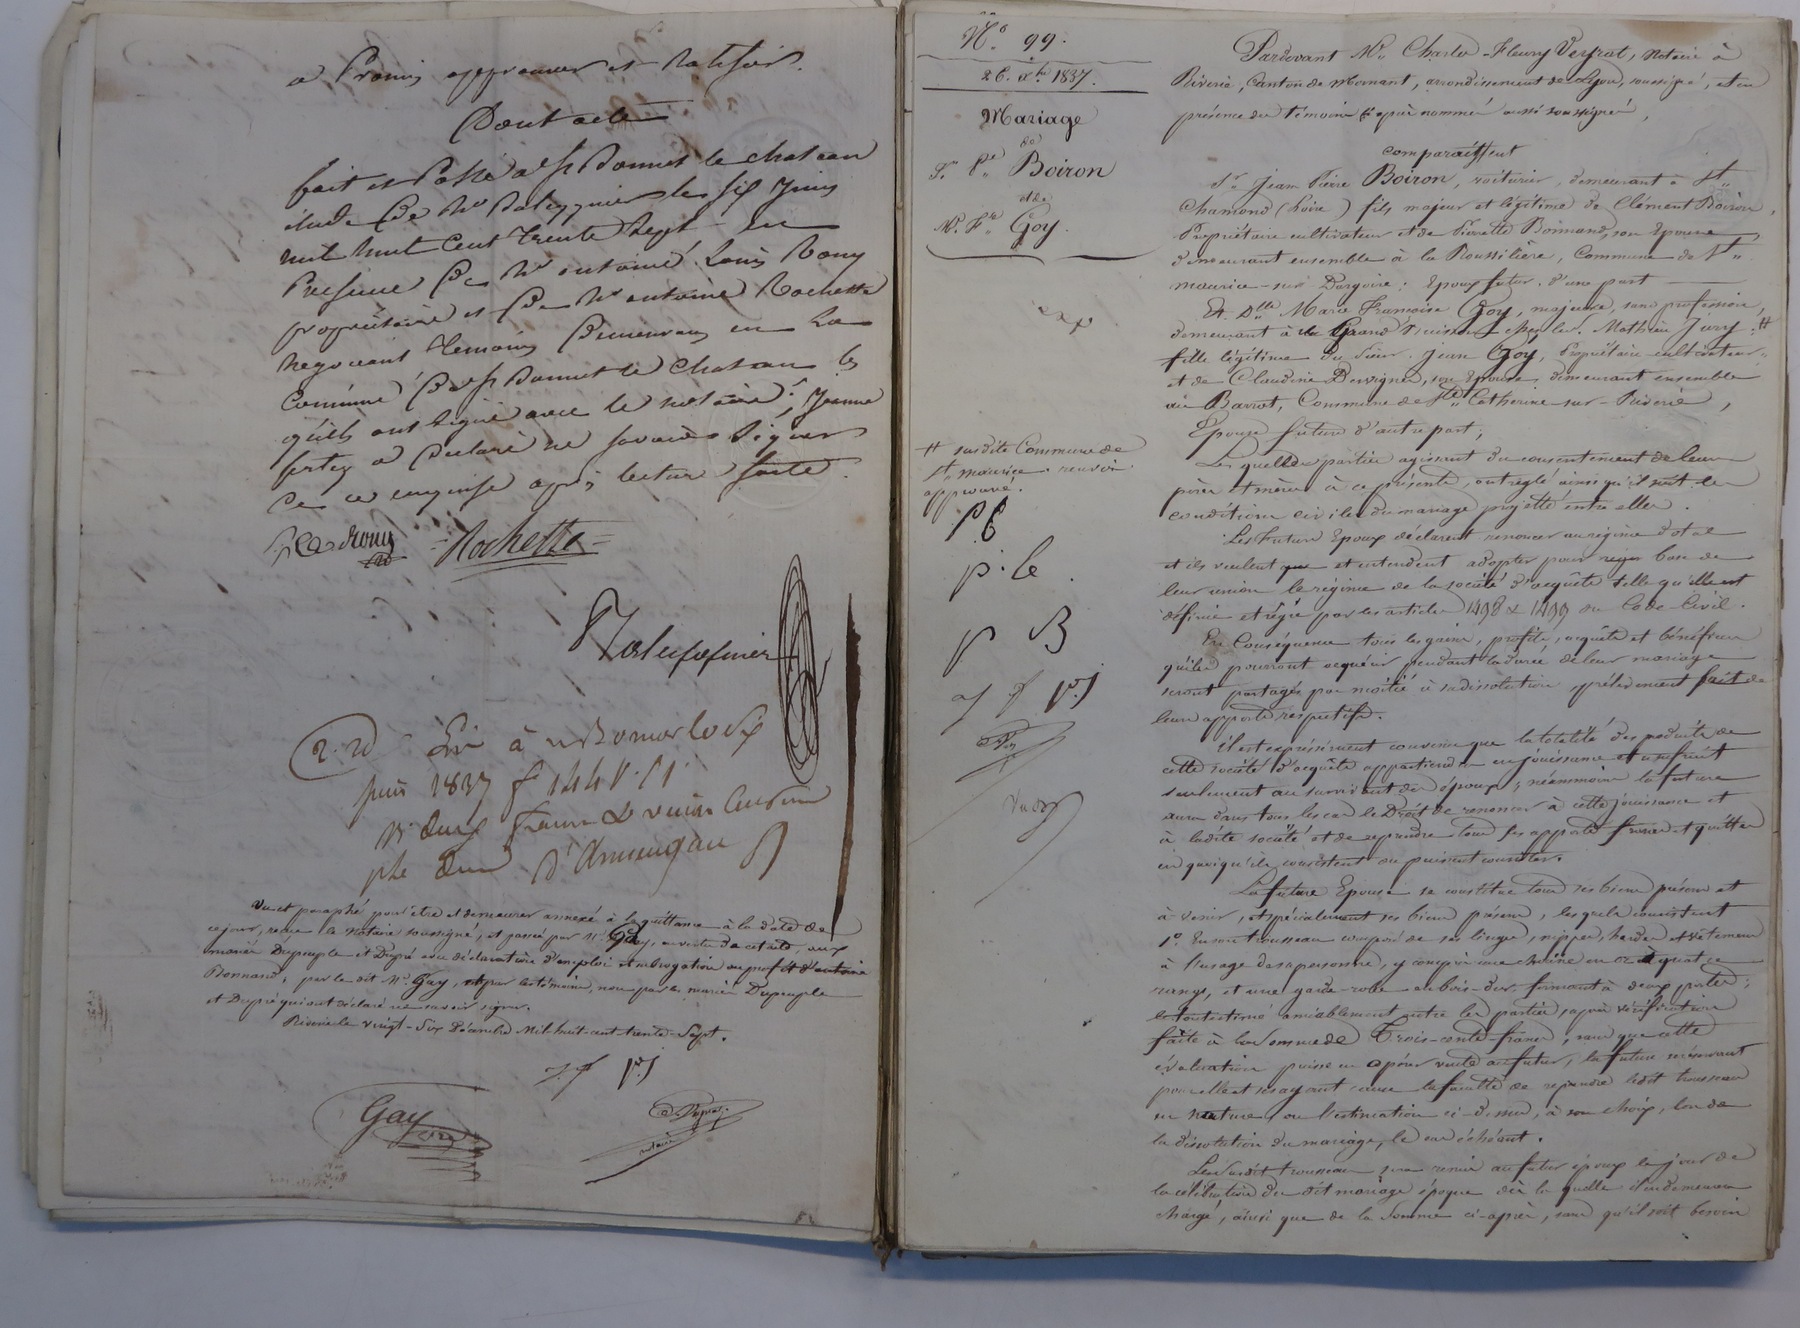 a Promis approuver et Ratifier.
Dont acte
fait et Passé a St Bonnet le chateau
étude De Me les six Juin
mil huit Cent trente Sept en
Presence De Mr antoine Louis Rony
propriétaire et De Mr antoine Rochette
negociant temoins Demeurans en La
Commune De St Bonnet le Chateau les
quels ont signé avec le notaire; Jeanne
a Declaré ne savoir Signer
De ce enquise après lecture faite.
Rony Rochette
juin 1837 f 144
Vu et paraphé pour être et demeurer annexé à la quittance à la date de
ce jour, reçue le Notaire soussigné, et passée par Mr Gay, aux
mariés Dupeuple et Dupré avec déclaration d'emploi et subrogation au profit d'antoine
Bonnand, par le dit Mr Gay, et par les témoins, non par les mariés Dupeuple
et Dupré qui ont déclaré ne savoir signer.
Riverie le vingt-Six Décembre Mil huit-cent trente-Sept.
J. f P. J
Gay
notaire
No 99.
26. Xbre 1837.
Mariage
de
J. Pre Boiron
et de
M. Fse Goy.
# susdite Commune de
St maurice. renvoi
approuvé.
P. B
p. C.
p B
J f P. J
Pardevant Me Charles-Fleury Veyrat, Notaire à
Riverie, Canton de Mornant, arrondissement de Lyon, soussigné, et en
présence des témoins ci après nommés aussi soussignés,
comparaissent
Sr Jean Pierre Boiron, voiturier, demeurant à St
Chamond (Loire) fils majeur et légitime de Clément Boiron,
Propriétaire cultivateur et de Pierrette Bonnand, son Epouse,
demeurant ensemble à la Roussilière, Commune de St
maurice-sur Dargoire: Epoux futur, d'une part
Et Dlle Marie Françoise Goy, majeure, sans profession,
demeurant à Grand chez le Sr. Mathieu Jury #
fille légitime du Sieur Jean Goy, Propriétaire-cultivateur
et de Claudine son Epouse, demeurant ensemble
au Barrot, Commune de Ste Catherine-sur-Riverie,
Epouse future d'autre part;
Les quelles parties agissant du consentement de leurs
pères et mères à ce présents, ont réglé ainsi qu'il suit les
conditions civiles du mariage projetté entre elles.
Les futurs Epoux déclarent renoncer au régime dotal
et ils veulent et entendent adopter pour base de
leur union le régime de la société d'acquêts telle qu'elle est
définie et régie par les articles 1498 & 1499 du Code Civil.
En Conséquence tous les gains, profits, acquêts et bénéfices
qu'ils pourront acquérir pendant la durée de leur mariage
seront partagés par moitié à sa dissolution prélèvement fait de
leurs apports respectifs.
il est expressément convenu que la totalité des produits de
cette société d'acquêts appartiendra en jouissance et usufruit
seulement au survivant des époux; néanmoins la future
aura dans tous les cas le Droit de renoncer à cette jouissance et
à ladite société et de reprendre tous ses apports francs et quittes
en quoi qu'ils consistent ou puissent consister.
La future Epouse se constitue tous ses biens présens et
à-venir, et spécialement ses biens présens, lesquels consistent
1o En un trousseau composé de ses linges, nippes, hardes et vêtemens
à l'usage de sa personne, y compris une chaîne en or à quatre
rangs, et une garde-robe en bois-dur fermant à deux portes;
le tout estimé amiablement entre les parties, après vérification
faite à la Somme de Trois-cents-francs, sans que cette
évaluation puisse en opérer vente au futur, la future se réservant
pour elle et ses ayant cause la faculté de reprendre ledit trousseau
en nature, ou l'estimation ci-dessus, à son choix, lors de
la dissolution du mariage, le cas échéant.
Le susdit trousseau sera remis au futur époux le jour de
la célébration du dit mariage époque dès la quelle il en demeurera
chargé, ainsi que de la Somme ci-après, sans qu'il soit besoin